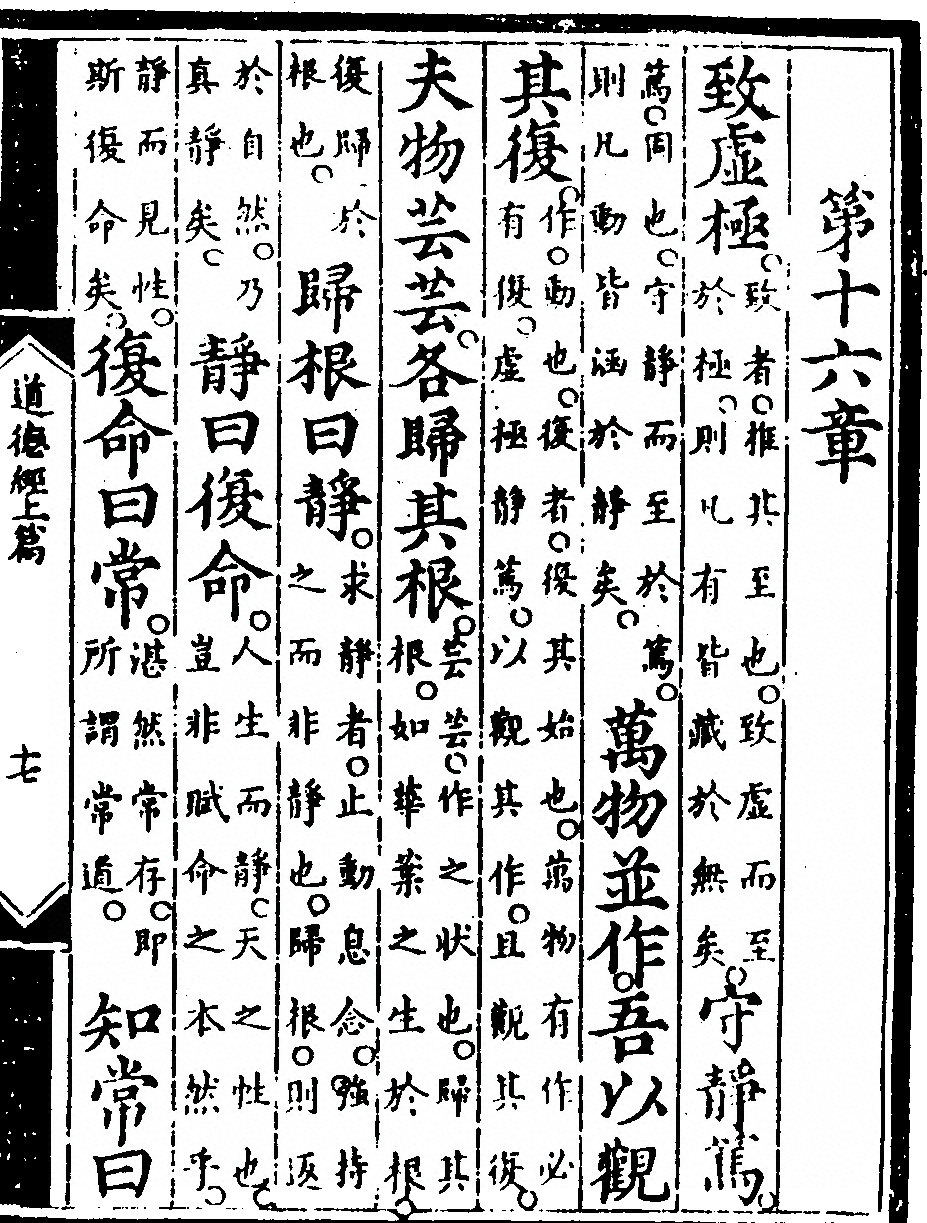 第十六章
致虛極。致者。推其至也。致虛而至於極。則凡有皆藏於無矣。守靜篤。
篤。固也。守靜而至於篤。則凡動皆涵於靜矣。萬物並作。吾以觀
其復。作。動也。復者。復其始也。萬物有作必有復。虛極靜篤。以觀其作。且觀其復。
夫物芸芸。各歸其根。芸芸。作之狀也。歸其根。如華葉之生於根。
復歸於根也。歸根曰靜。求靜者。止動息念。強持之而非靜也。歸根。則返
於自然。乃真靜矣。靜曰復命。人生而靜。天之性也。豈非賦命之本然乎。
靜而見性。斯復命矣。復命曰常。湛然常存。即所謂常道。知常曰
道德經上篇
七